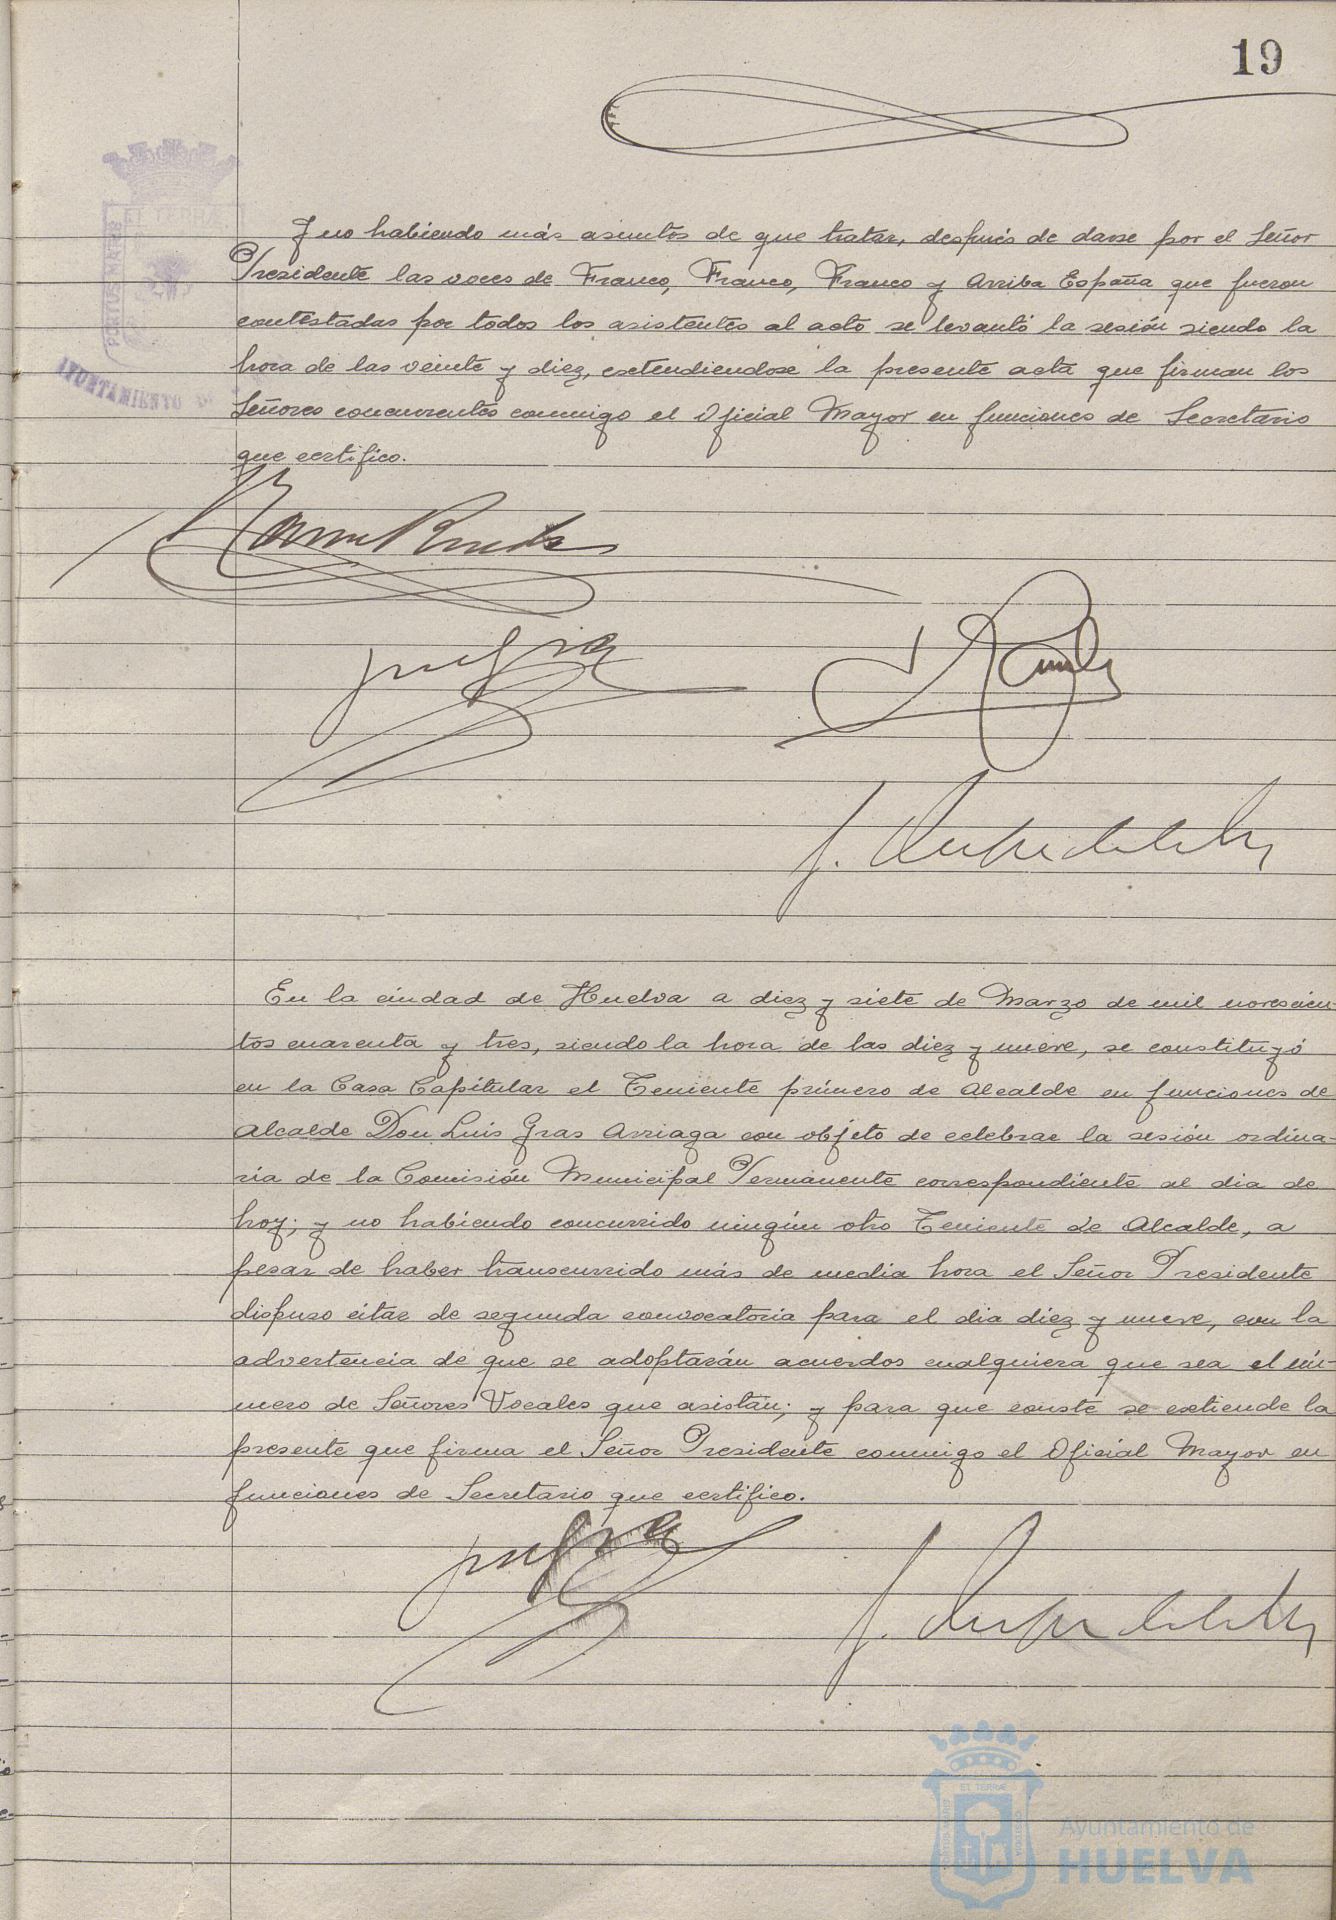 19
ET TERRÆ
PORTUS MARIS
AYUNTAMIENTO DE
Y no habiendo más asuntos de que tratar, después de darse por el Señor
Presidente las voces de Franco, Franco, Franco y Arriba España que fueron
contestadas por todos los asistentes al acto se levantó la sesión siendo la
hora de las veinte y diez, extendiendose la presente acta que firman los
Señores concurrentes conmigo el Oficial Mayor en funciones de Secretario
que certifico.
En la ciudad de Huelva a diez y siete de Marzo de mil novescien-
tos cuarenta y tres, siendo la hora de las diez y nueve, se constituyó
en la Casa Capitular el Teniente primero de Alcalde en funciones de
Alcalde Don Luis Gras Arriaga con objeto de celebrar la sesión ordina-
ria de la Comisión Municipal Permanente correspondiente al dia de
hoy; y no habiendo concurrido ningún otro Teniente de Alcalde, a
pesar de haber transcurrido más de media hora el Señor Presidente
dispuso citar de segunda convocatoria para el dia diez y nueve, con la
advertencia de que se adoptarán acuerdos cualquiera que sea el nú-
mero de Señores Vocales que asistan; y para que conste se extiende la
presente que firma el Señor Presidente conmigo el Oficial Mayor en
funciones de Secretario que certifico.
ET TERRÆ
PORTUS MARIS
CUSTODIA
Ayuntamiento de
HUELVA